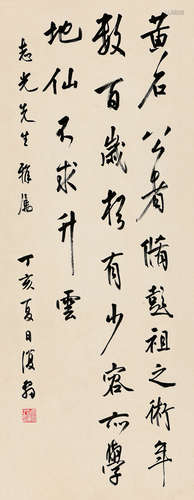 黄石公者備彭祖之術年
数百歲猶有少容亦學
地仙不求升雲
志光先生雅属
丁亥夏日復翁